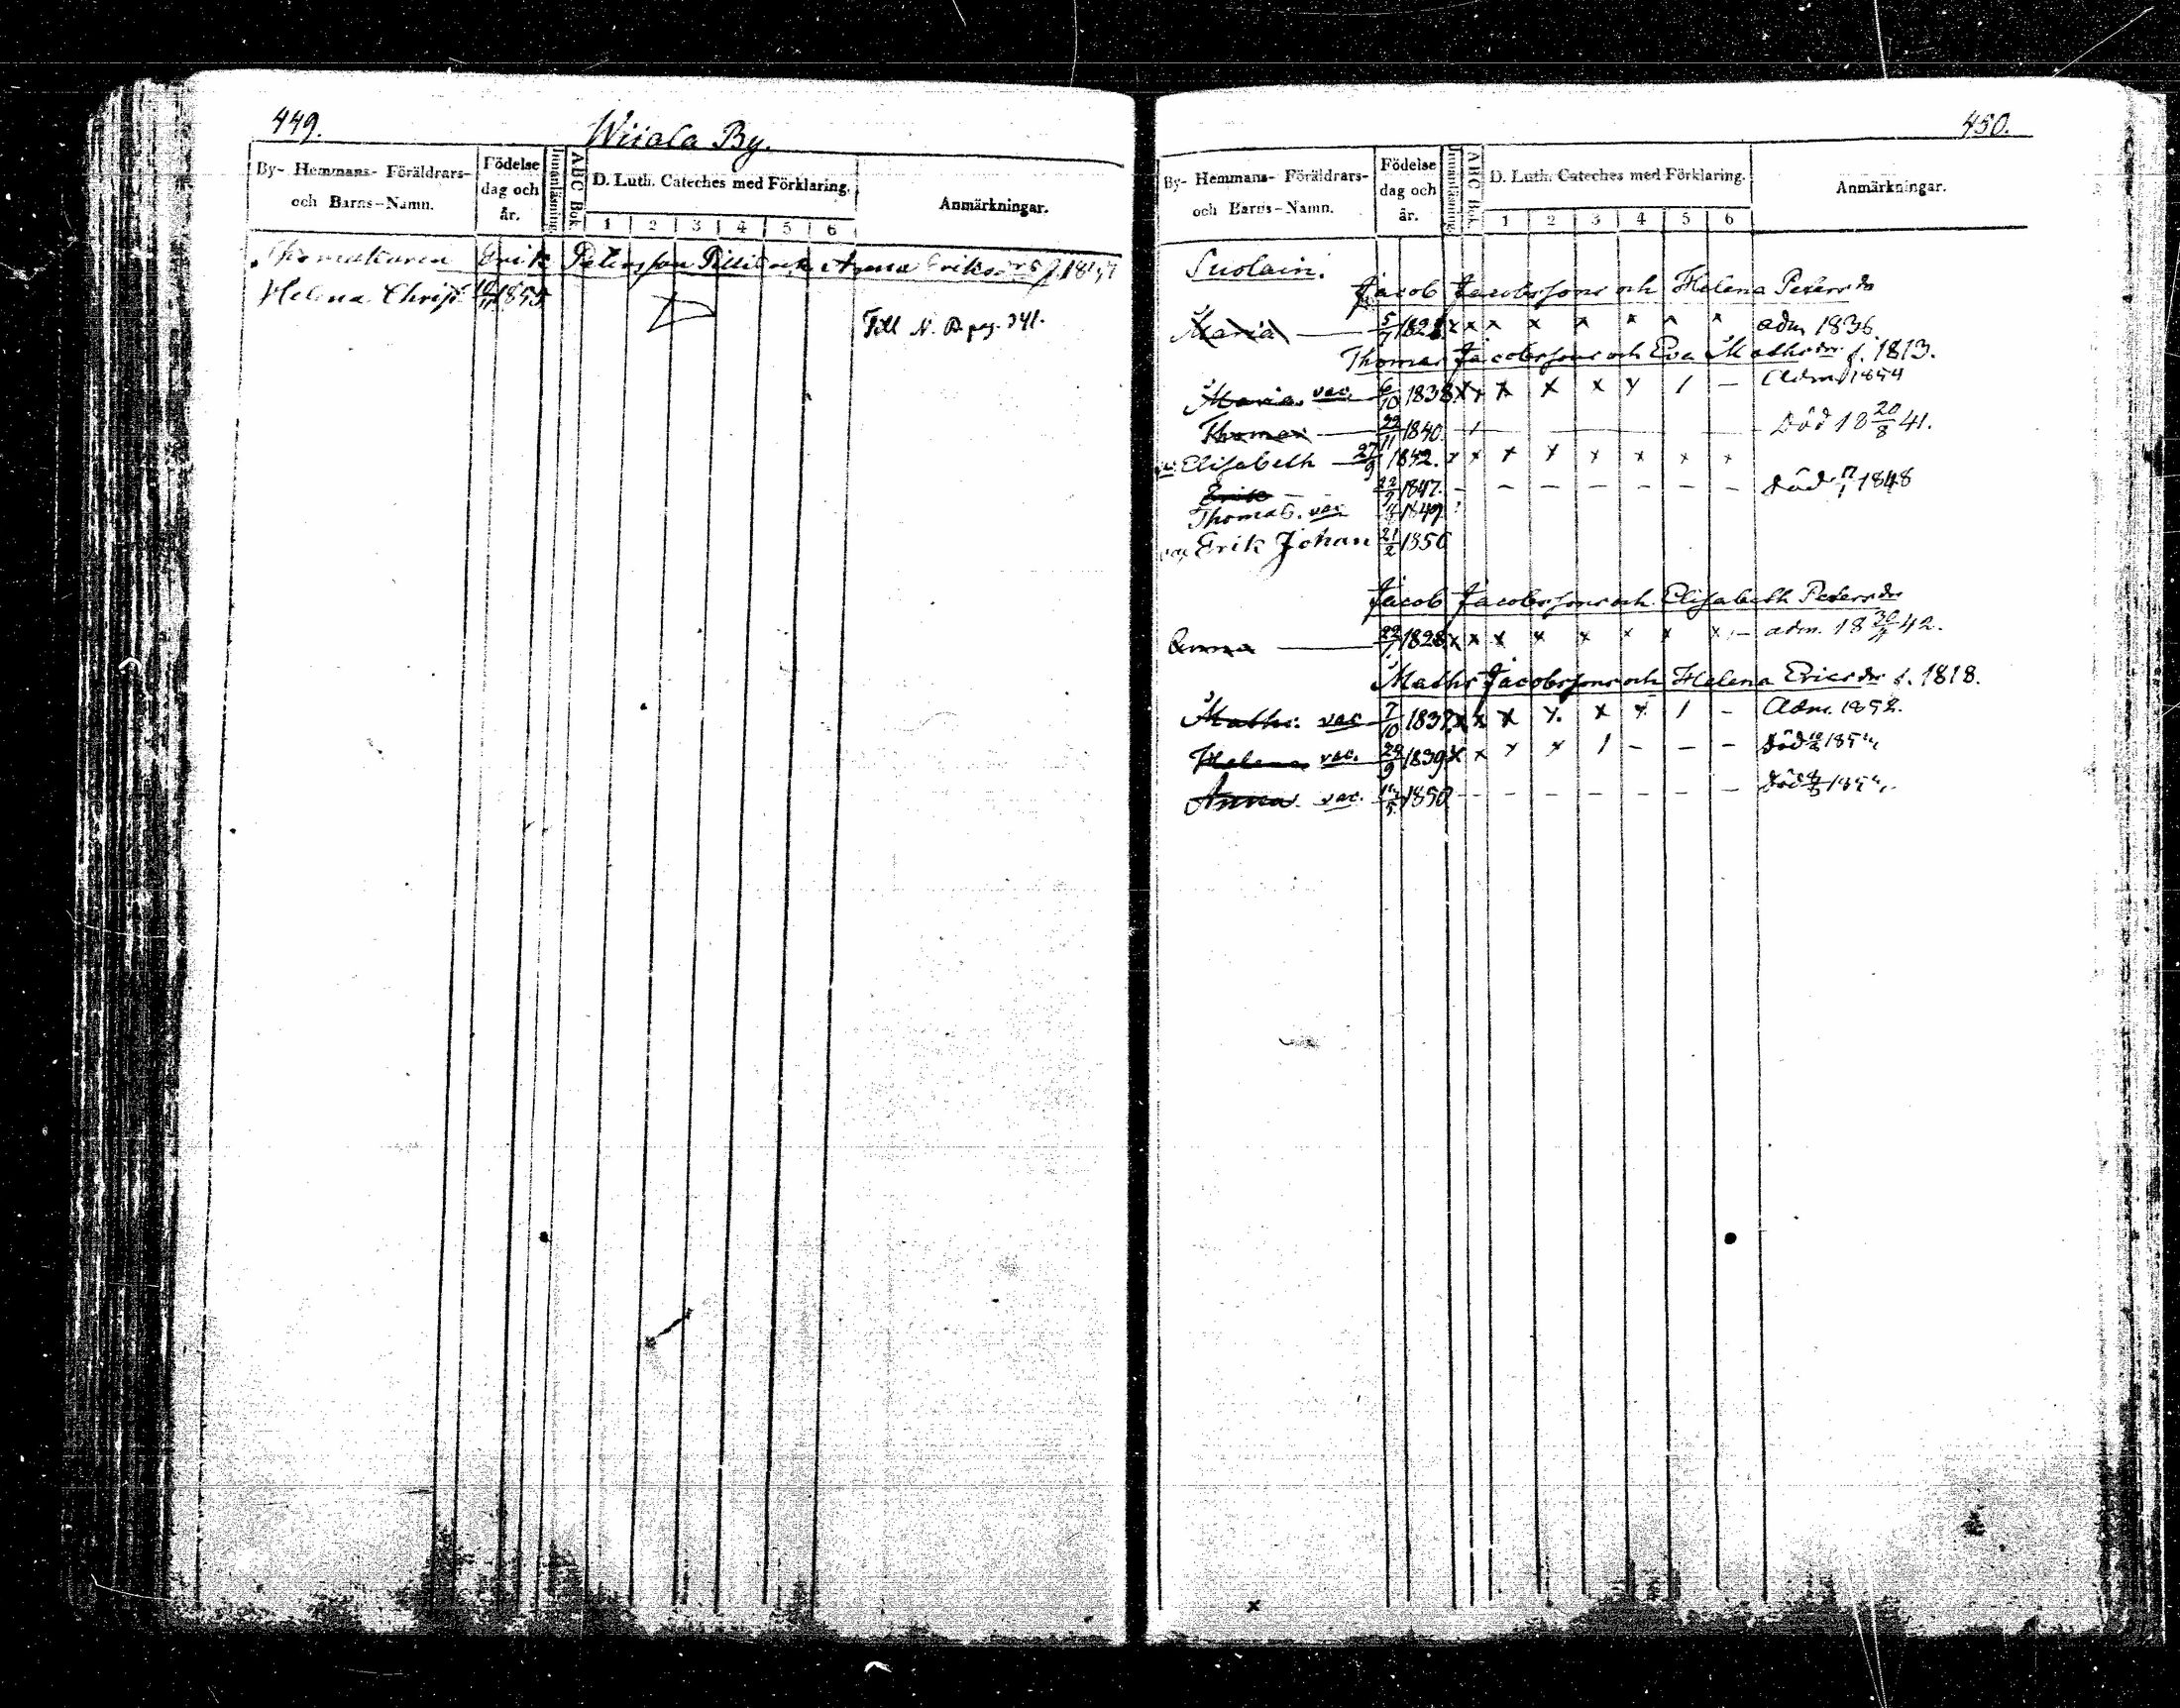 449.
Wiiala By.
By- Hemmans- Föräldrars- och Barns-Namn.
Födelse dag och år.
Innanläsning
ABC Bok
D. Luth. Cateches med Förklaring.
1 2 3 4 5 6
Anmärkningar.
Erik Petersson Pilli och Anna Eriksdr f. 18
Helena Christ. 1855
Till N. B. pag. 341.
450.
By- Hemmans- Föräldrars- och Barns-Namn.
Födelse dag och år.
Innanläsning
ABC Bok
D. Luth. Cateches med Förklaring.
1 2 3 4 5 6
Anmärkningar.
Suolain.
Jacob Jacobssons och Helena Petersdr
Maria 5/7 1821 x x x x x x x x adm 1836.
Thomas Jacobssons och Eva Mathsdr f. 1813.
Maria. vac. 6/10 1838 x x x x x x / — Adm 1854
Thomas 22/11 1840. Död 18 20/8 41.
Elisabeth 27/9 1842. x x x x x x x x
Erik 1847. — — — — — — — Död 1848
Thomas. vac 1849
vac Erik Johan 21/2 1856
Jacob Jacobssons och Elisabeth Petersdr
Anna 22/7 1828 x x x x x x x x — adm. 18 42.
Maths Jacobssons och Helena Ericsdr f. 1818.
Maths. vac 7/10 1837 x x x x x x / — Adm. 1852.
Helena vac. 29/9 1839 x x x x / — — — Död 185
Anna. vac. 1850 — — — — — — — Död 185